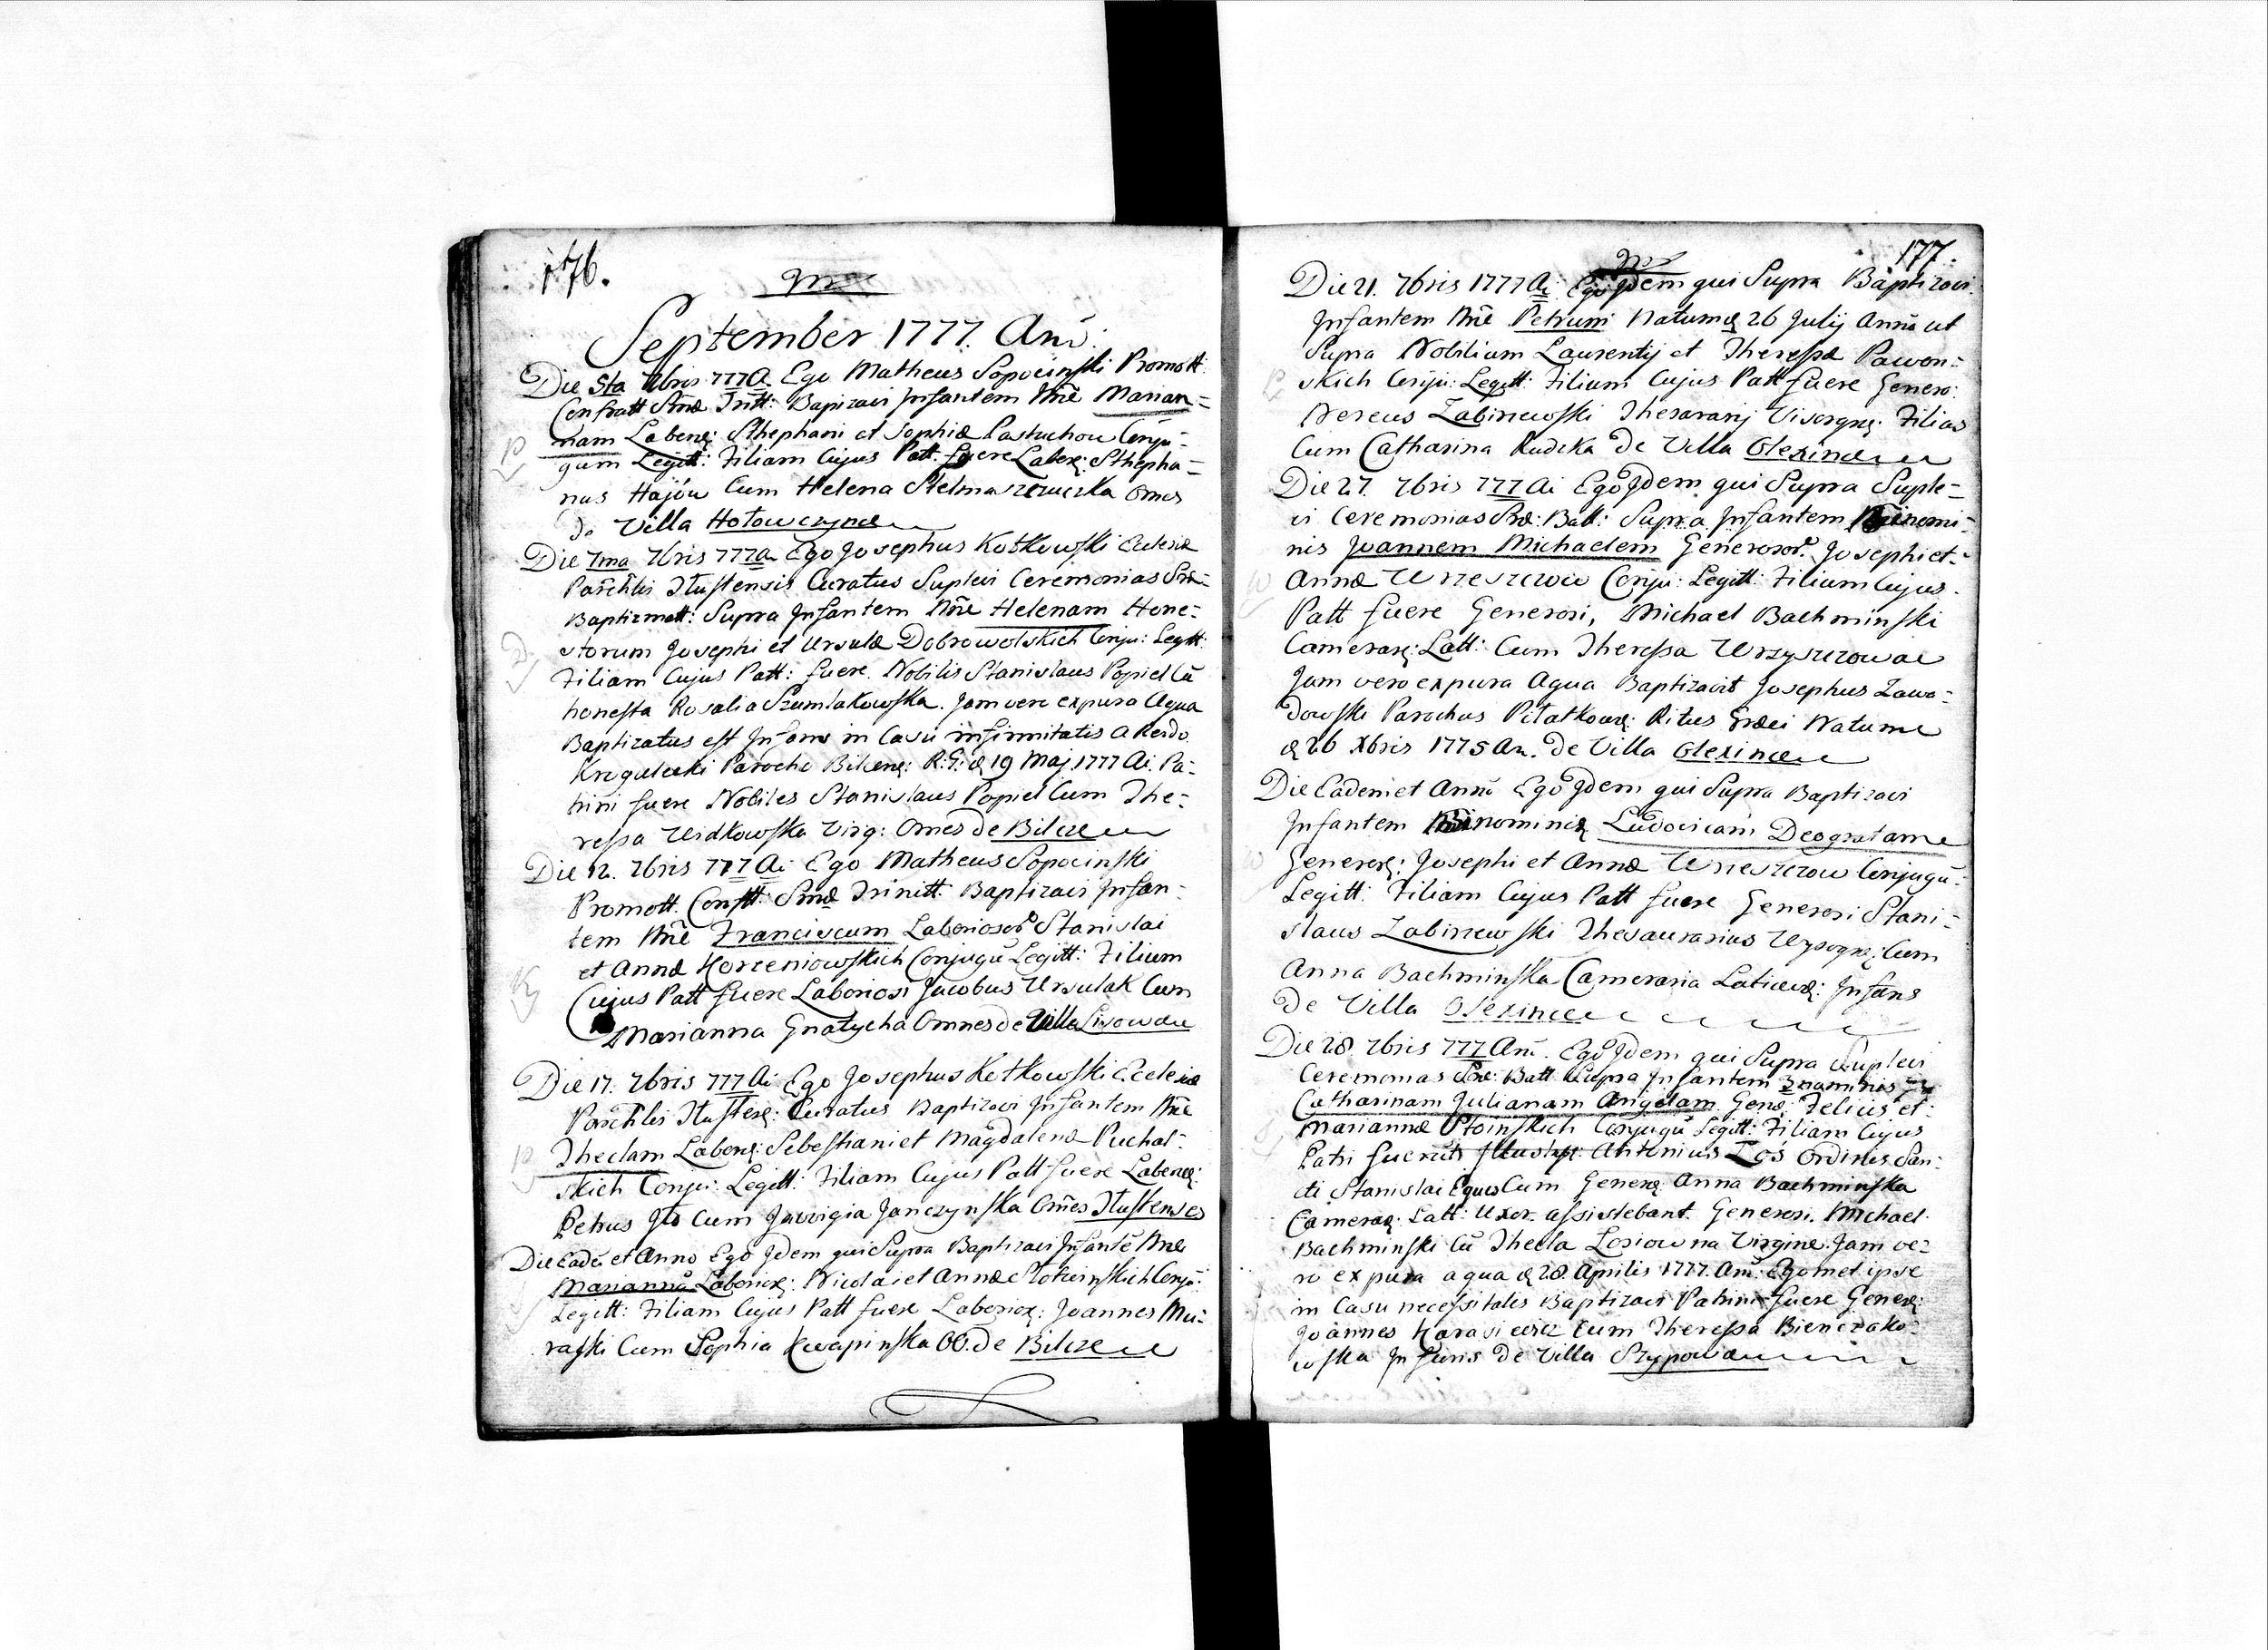 176.
September 1777. Anō:
Die 5ta 7bris 777 A Ego Matheus Sopocinski Promott:
Confratt Smæ Tritt: Bapizavi Infantem Nnē Marian=
nam Labenę: Sthephani et Sophiæ Pastuchow Conju=
gum Legitt: Filiam Cujus Patt: fuere Laborę: Sthepha=
nus Hajów Cum Helena Stelmaszczuczka Omes
de Villa Hołowczynce
Die 7ma 7bris 777a Ego Josephus Kotkowski Eclesiæ
Parchlis Tłustensis Curatus Suplevi Ceremonias Sræ=
Baptizmatt: Supra Infantem Nnē Helenam Hone=
storum Josephi et Ursulæ Dobrowolskich Conju: Legitt:
Filiam Cujus Patt: fuere Nobilis Stanislaus Popiel Cū
honesta Rosalia Szumlakowska. Jam vero ex pura Aqua
Baptizatus est Infans in Casu infirmitatis a Rendo
Kregulecki Parocho Bilcenę: R: G: d 19 Maj 1777 Ai. Pa=
trini fuere Nobiles Stanislaus Popiel Cum The=
ressa Widkowska Virg: Omes de Bilcze
Die 12. 7bris 777 Ai Ego Matheus Sopocinski
Promott. Confr: Smæ Trinitt: Baptizavi Infan=
tem Nnē Franciscum Laboriosor Stanislai
et Annæ Korzeniowskich Conjugū Legitt: Filium
Cujus Patt fuere Laboriosi Jacobus Ursulak Cum
Marianna Gnatycha Omnes de Villa Lisowce
Die 17. 7bris 777 Ai Ego Josephus Kotkowski Ecclesiæ
Parchlis Tłustenę: Curatus Baptizavi Infantem Nnē
Theclam Labonę: Sebestiani et Magdalenæ Puchal=
skich Conju: Legitt: Filiam Cujus Patt fuere Laborę:
Petrus Jło Cum Jadvigia Janczynska Omēs Tłustenses
Die Eadē et Anno Ego Idem qui Supra Baptizavi Infantē Nnē
Mariannā Laborioę: Nicolai et Annæ Słotwinskich Conju:
Legitt: Filiam Cujus Patt fuere Laborioę: Joannes Mu=
rafki Cum Sophia Kwapinska OO. de Bilcze
177.
Die 21. 7bris 1777 Ai Ego Idem qui Supra Baptizavi
Infantem Nnē Petrum Natum d 26 Julij Annō ut
Supra Nobilium Laurentij et Theressæ Pawon=
skich Conju: Legitt: Filium Cujus Patt fuere Genero:
Nereus Zabinewski Thesararij Visogrę: Filius
Cum Catharina Rudzka de Villa Olexince
Die 27. 7bris 777 Ai Ego Idem qui Supra Suple=
vi Ceremonias Sræ: Batt: Supra Infantem Binomi=
nis Joannem Michaelem Generosor Josephi et
Annæ Wrzeszczow Conju: Legitt: Filium Cujus
Patt fuere Generosi, Michael Bachminski
Camerarę: Latt: Cum Theressa Wrzyszczowa
Jam vero ex pura Aqua Baptizavit Josephus Zawa=
dowski Parochus Piłatkowę: Ritus Græci Natum
d 26 Xbris 1775 An. de Villa Olexince
Die Eadem et Annō Ego Idem qui Supra Baptizavi
Infantem Binominis Ludovicam Deogratam
Generoę: Josephi et Annæ Wrzeszczow Conjugū:
Legitt: Filiam Cujus Patt fuere Generosi Stani=
slaus Zabinewski Thesaurarius Wysogrę: Cum
Anna Bachminska Cameraria Laticzę: Infans
de Villa Olexince
Die 28. 7bris 777 Anō. Ego Idem qui Supra Suplevi
Ceremonias Sræ: Batt: Supra Infantem 3nominis
Catharinam Julianam Angelam Genę: Felicis et
Mariannæ Ptoinskich Conjugū Legitt: Filiam Cujus
Patri fuerūt Antonius Łoś Ordinis San=
cti Stanislai Eques Cum Generę: Anna Bachminska
Camerarę: Latt: Uxor. assistebant. Generosi. Michael
Bachminski Cū Thecla Łosiowna Virgine. Jam ve=
ro ex pura aqua d 28. Aprilis 1777. Anō: Egomet ipse
in Casu necessitatis Baptizavi Patrini fuere Generę:
Joannes Harasiewicz Cum Theressa Bienczako=
wska Infans de Villa Szypowce